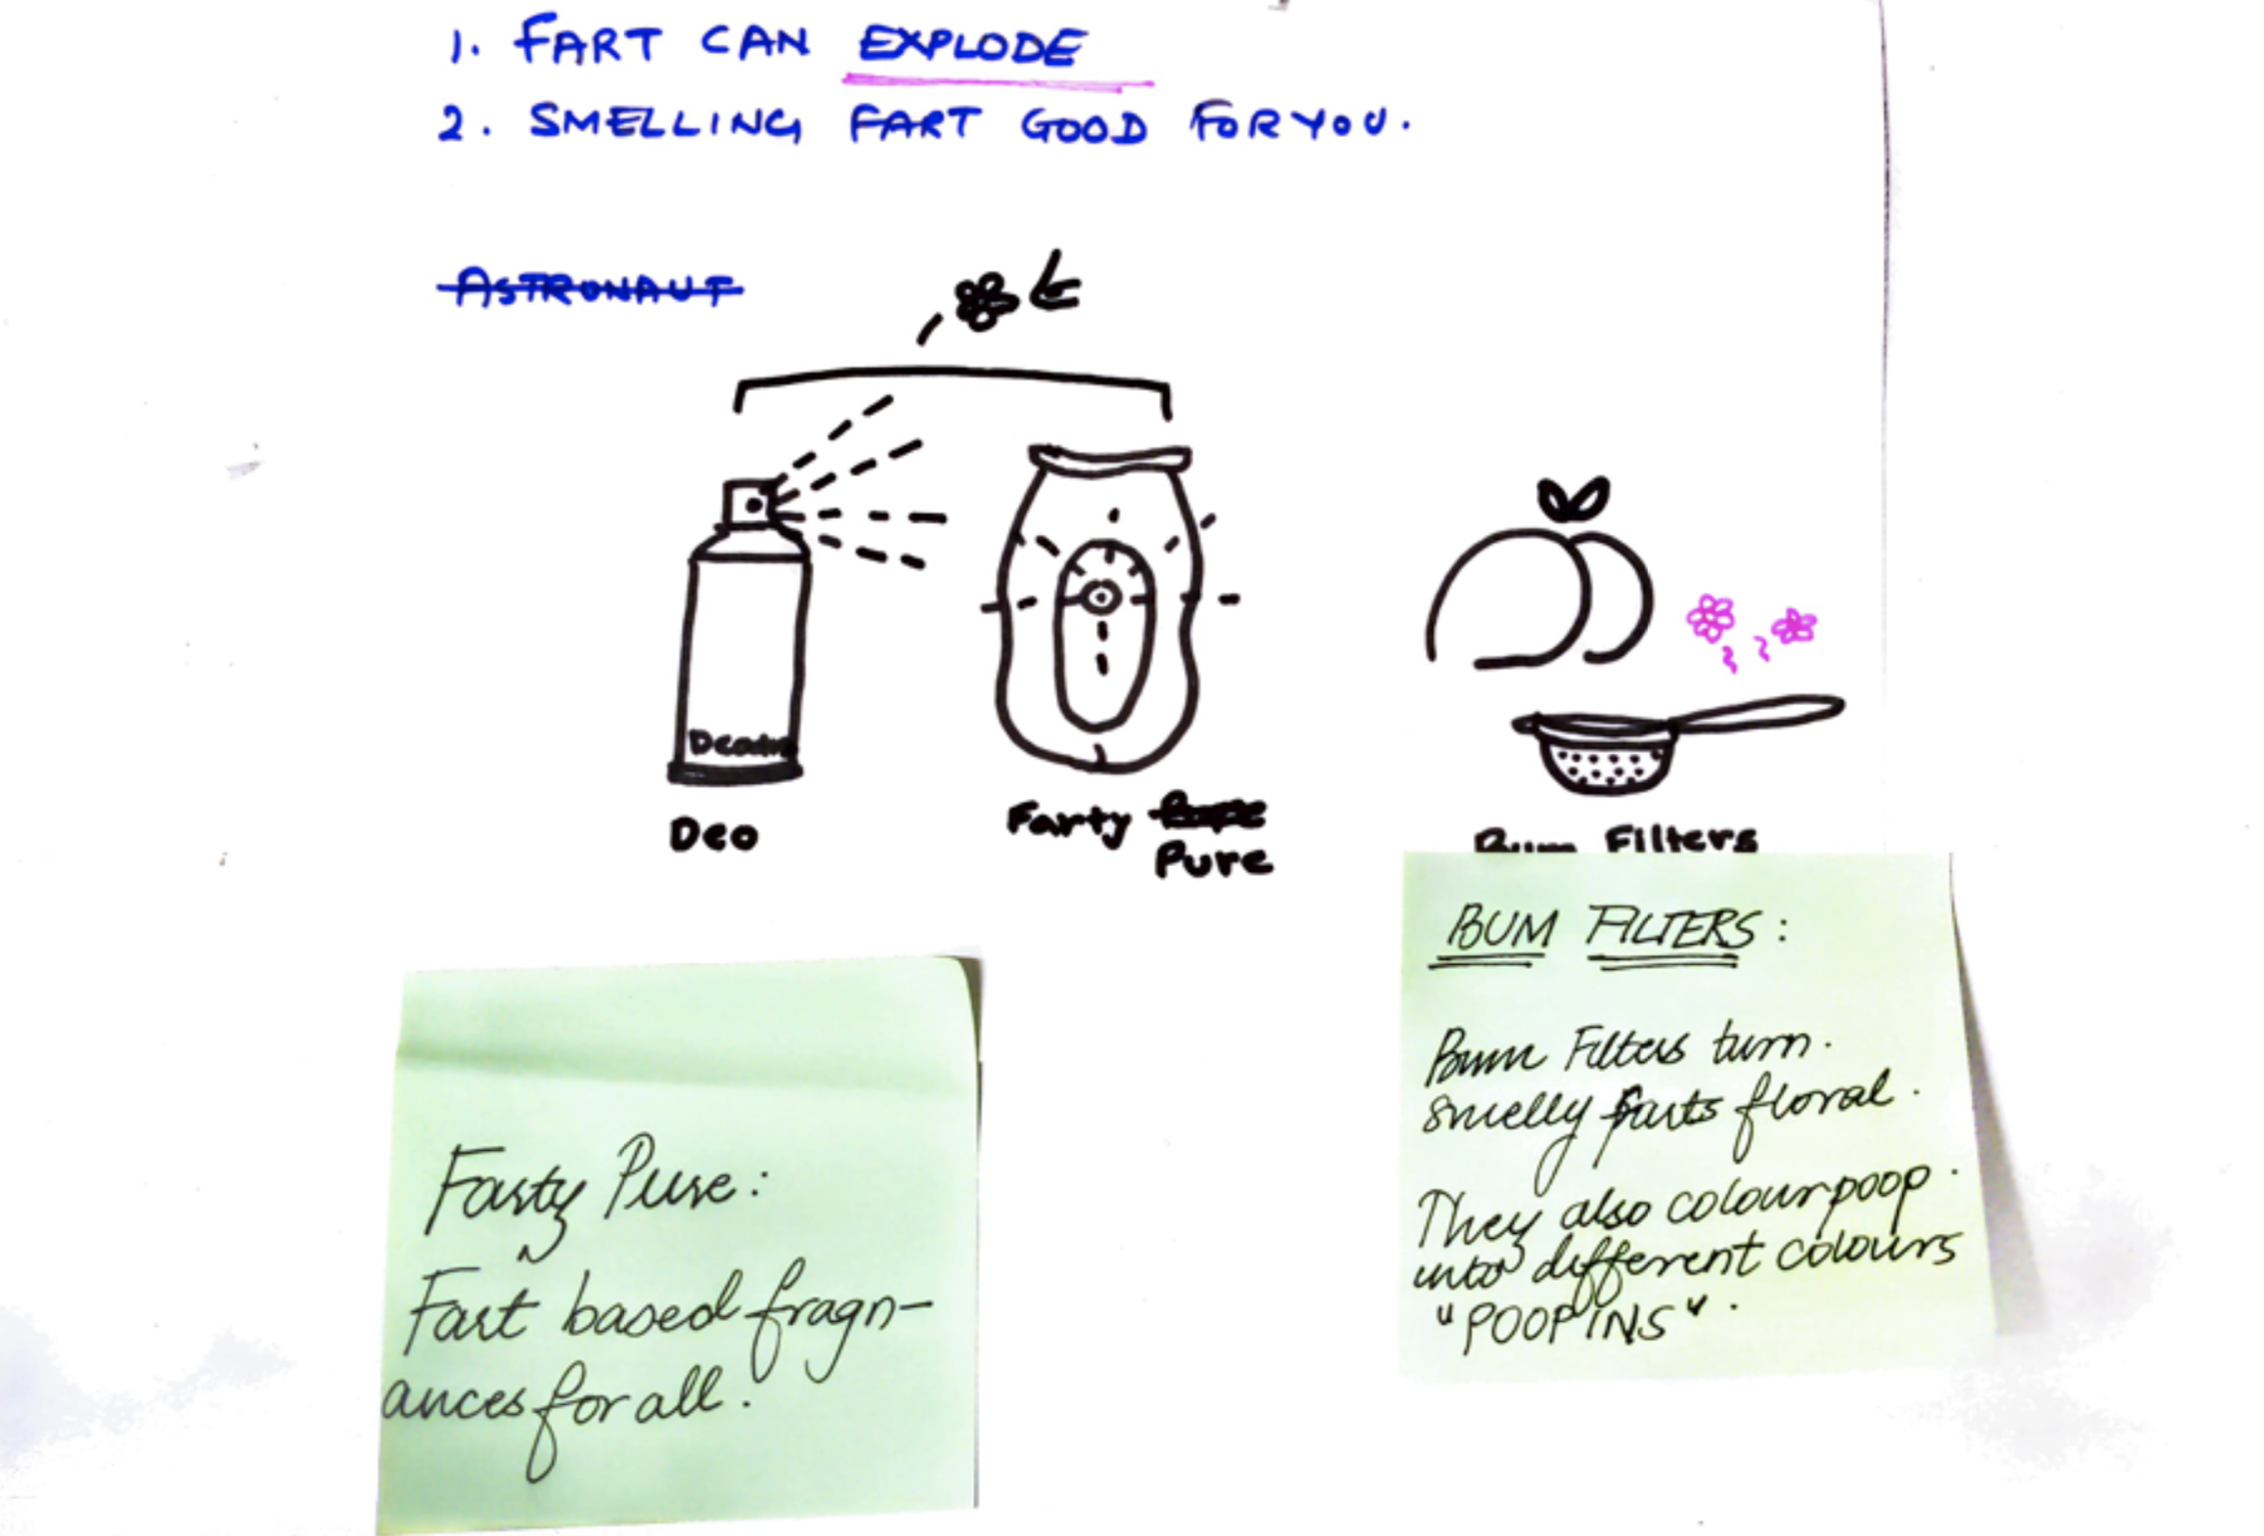 1. FART CAN EXPLODE
2. SMELLING FART GOOD FOR YOU.
ASTRONAUT
Deo
Farty
Pure
Bum Filters
BUM FILTERS:
Bum Filters turn.
smelly farts floral.
They also colour poop.
into different colours
"POOPINS".
Farty Pure:
Fart based fragn-
ances for all.